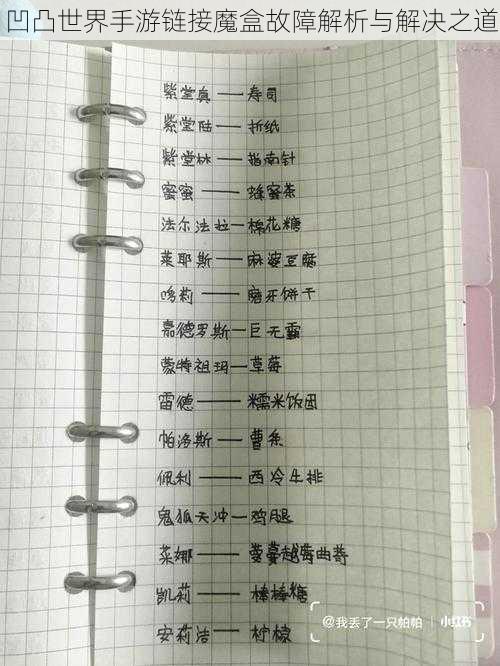 凹凸世界手游链接魔盒故障解析与解决之道
紫堂真——寿司
紫堂陆——折纸
紫堂林——指南针
蜜蜜——蜂蜜茶
法尔法拉—棉花糖
莱耶斯——麻婆豆腐
鸣莉——磨牙饼干
嘉德罗斯—巨无霸
蒙特祖玛—草莓
雷德——糯米饭团
帕洛斯——薯条
佩利——西冷牛排
鬼狐天冲—鸡腿
莱娜——蔓越莓曲奇
凯莉——棒棒糖
安莉洁——柠檬
@我丢了一只帕帕 | 小红书